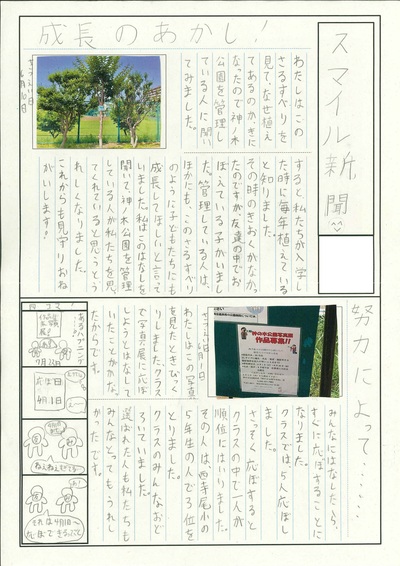 スマイル新聞
成長のあかし!
わたしはこの
さるすべりを
見て、なぜ植え
てあるのかきに
なったので神ノ木
公園を管理し
ている人に聞い
てみました。
すると、私たちが入学し
た時に毎年植えている
と知りました。
その時のきおくがなかっ
たのですが友達の中でお
ぼえている子がいまし
た。管理している人は、
ほかにも、このさるすべり
のように子どもたちにも
成長してほしいと言って
いました。私はこのはなしを
聞いて、神ノ木公園を管理
している人が私たちを思っ
てくれていると思うとう
れしくなりました。
これからも見守りおね
がいします!
努力によって……
わたしはこの写真
を見たときびっく
りしましたクラス
で写真展に応ぼ
しようとはなして
いたことがかな
たからです。
みんなにはなしたら、
すぐに応ぼすることに
なりました。
クラスでは、5人応ぼし
ました。
さっそく応ぼすると
クラスの中で一人が
順位にはいりました。
その人は西寺尾小の
5年生の人で3位を
とりました。
クラスのみんなおど
ろいていました。
選ばれた人も私たちも
みんなとってもうれし
かったです。
神の木公園写真展
作品募集!!
4コマ
あるハプニング
7月
応ぼ日
4月1日
ねぇねぇどうする
それは4月1日